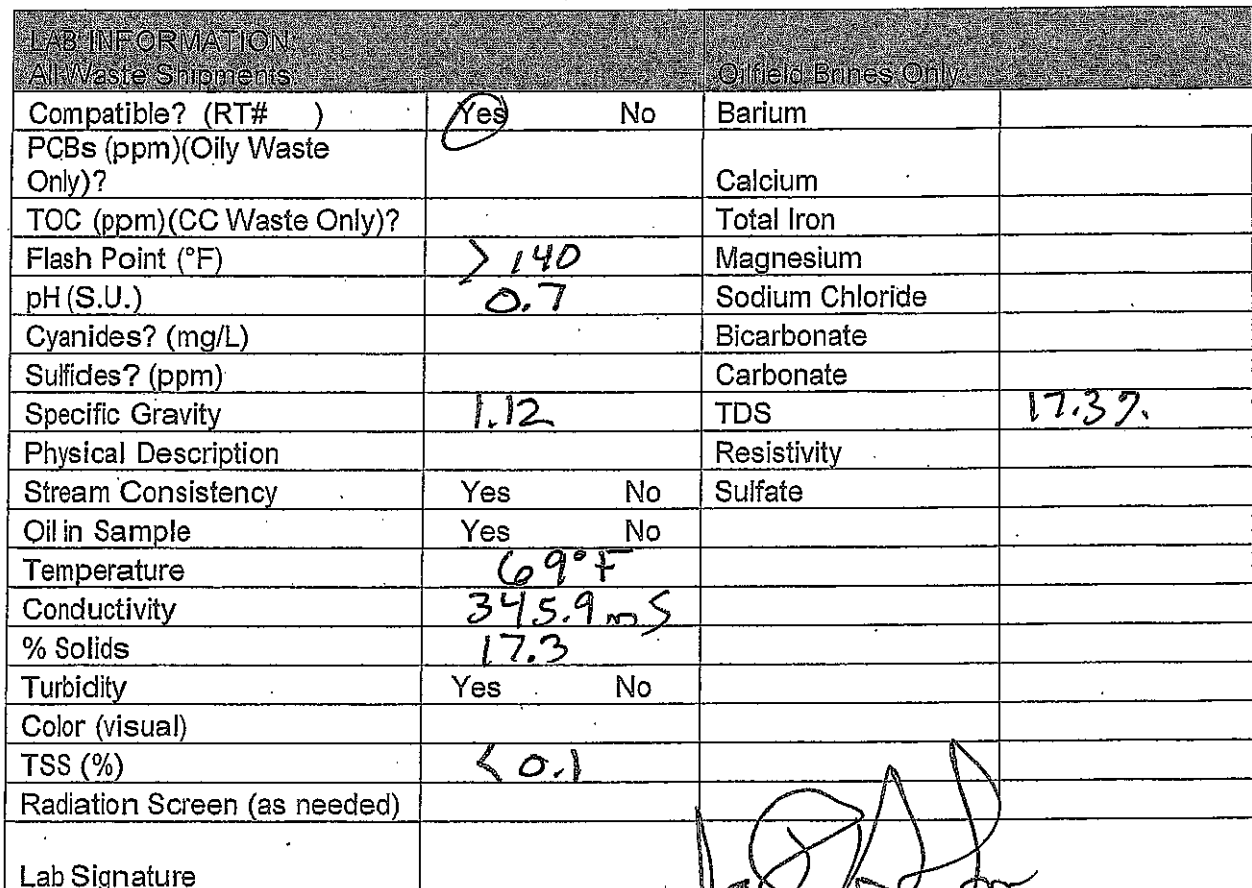 LAB INFORMATION:
All Waste Shipments Oilfield Brines Only
Compatible? (RT# ) Yes No Barium
PCBs (ppm)(Oily Waste
Only)? Calcium
TOC (ppm)(CC Waste Only)? Total Iron
Flash Point (°F) > 140 Magnesium
pH (S.U.) 0.7 Sodium Chloride
Cyanides? (mg/L) Bicarbonate
Sulfides? (ppm) Carbonate
Specific Gravity 1.12 TDS 17.3%
Physical Description Resistivity
Stream Consistency Yes No Sulfate
Oil in Sample Yes No
Temperature 69°F
Conductivity 345.9 mS
% Solids 17.3
Turbidity Yes No
Color (visual)
TSS (%) < 0.1
Radiation Screen (as needed)
Lab Signature